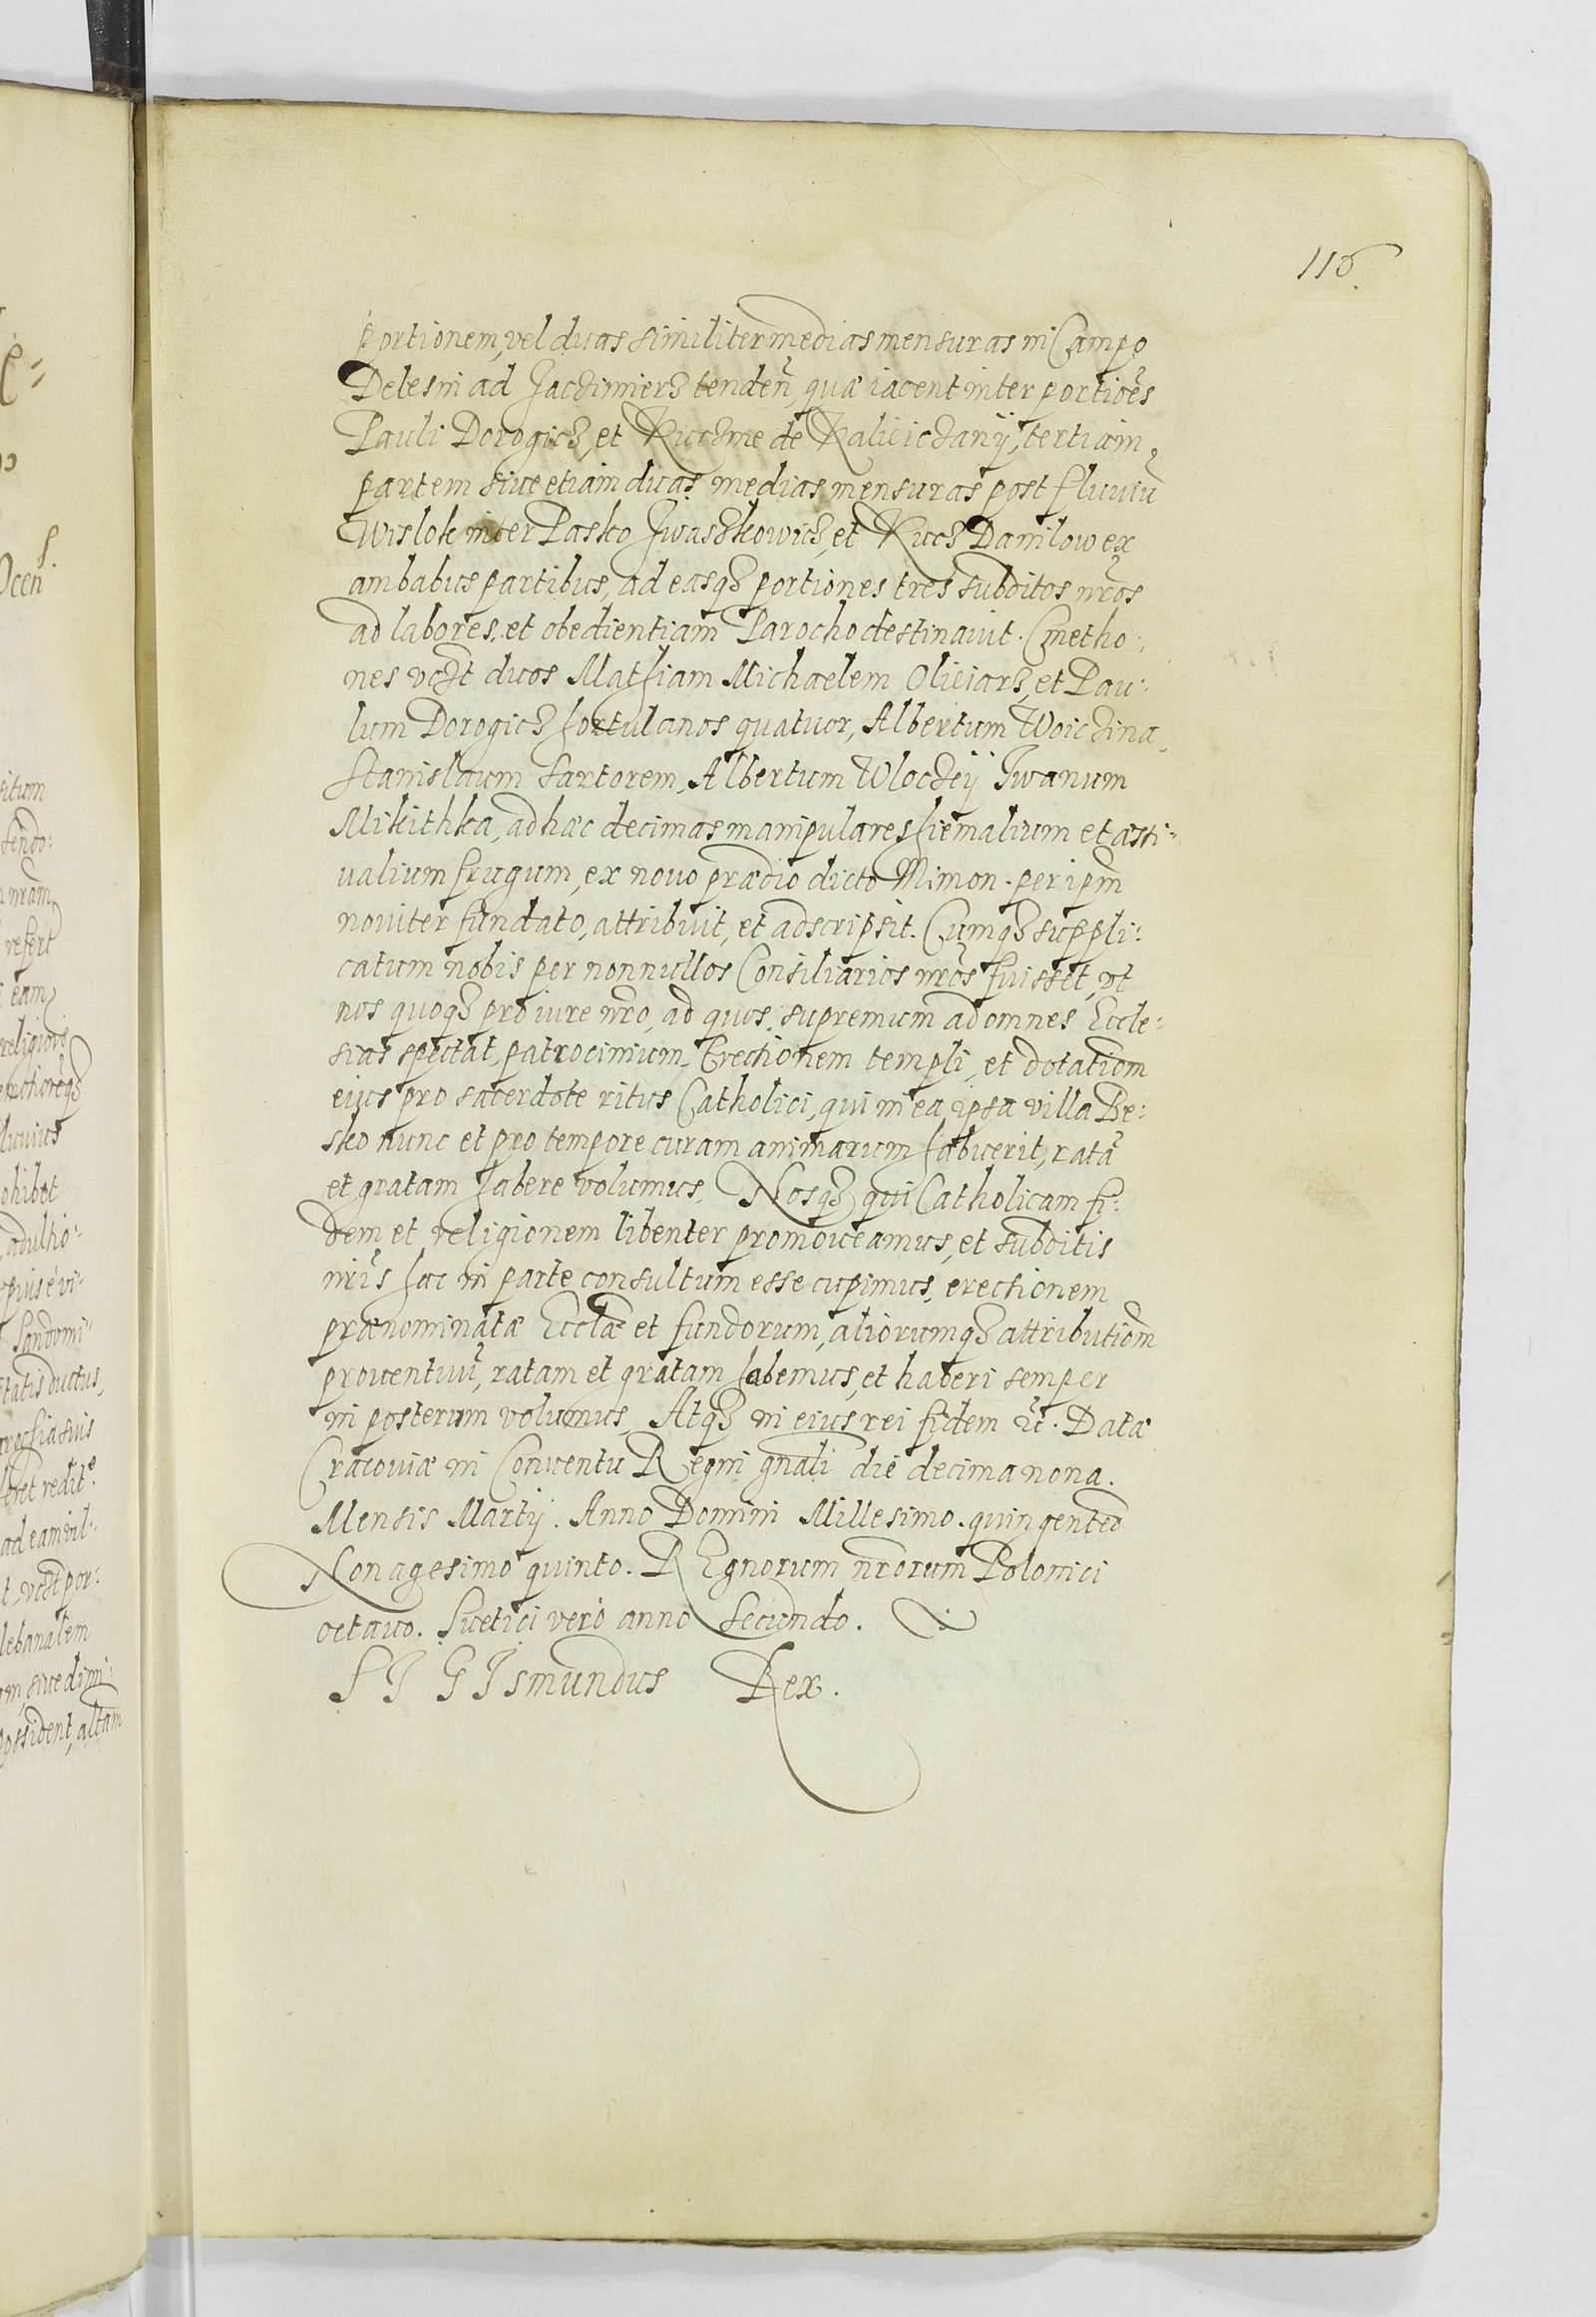 116.
portionem, vel duas similiter medias mensuras in Campo
Delesin ad Jacżimierz tendeñ, quæ iacent inter portiões
Pauli Dorogicz, et Kuczme de Kaliiczanÿ, tertiam
partem siue etiam duas medias mensuras post fluuiũ
Wislok inter Pasko Jwaszkowicz, et Kucz Danilow ex
ambabus partibus, ad easq3 portiones tres subditos nr̃os
ad labores, et obedientiam Parocho destinauit. Cmetho:
nes vczt duos Mathiam Michaelem Oliiarz, et Pau:
lum Dorogicz hortulanos quatuor, Albertum Woiczina,
Stanislaum Sartorem, Albertum Wloczÿ Jwanum
Mikithka, ad hæc decimas manipulares hiemalium et æsti:
ualium frugum, ex nouo prædio dicto Mimon. per ipm̃
nouiter fundato, attribuit, et adscripsit. Cumq3 suppli:
catum nobis per nonnullos Consiliarios nr̃os fuisset, vt
nos quoq3 pro iure nr̃o, ad quos, supremum ad omnes Eccle:
sias spectat, patrocinium, Erectionem templi, et dotatiom̃
eius pro sacerdote ritus Catholici, qui in ea ipsa villa Be:
sko nunc et pro tempore curam animarum habuerit, ratã
et gratam habere volumus. Nosq3 qui Catholicam fi:
dem et religionem libenter promoueamus, et subditis
nr̃is hac in parte consultum esse cupimus, erectionem
prænominatæ Ecclæ̃ et fundorum, aliorumq3 attributiom̃
prouentuũ, ratam et gratam habemus, et haberi semper
in posterum volumus, Atq3 in eius rei fidem &c. Datæ
Cracouiæ in Conuentu Regni gñali die decima nona.
Mensis Martÿ. Anno Domini Millesimo. quingenteõ
Nonagesimo quinto. REgnorum nr̃orum Polonici
octauo. Suetici verò anno Secundo.
SIGISmundus Rex.